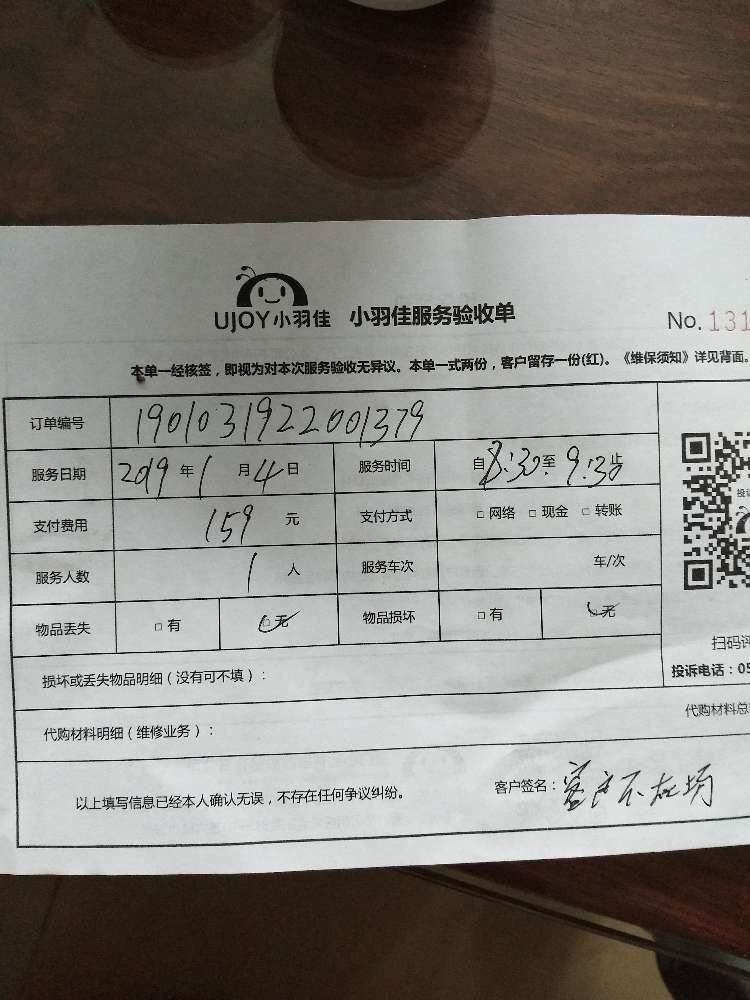 UJOY小羽佳 小羽佳服务验收单
No. 131
本单一经核签，即视为对本次服务验收无异议。本单一式两份，客户留存一份(红)。《维保须知》详见背面。
订单编号 1901031922001379
服务日期 2019年1月4日 服务时间 自8:30至9:30止
支付费用 159元 支付方式 □网络 □现金 □转账
服务人数 1人 服务车次 车/次
物品丢失 □有 □无 物品损坏 □有 □无
损坏或丢失物品明细（没有可不填）：
代购材料明细（维修业务）：
以上填写信息已经本人确认无误，不存在任何争议纠纷。
客户签名：客户不在场
扫码评
投诉电话：05
代购材料总